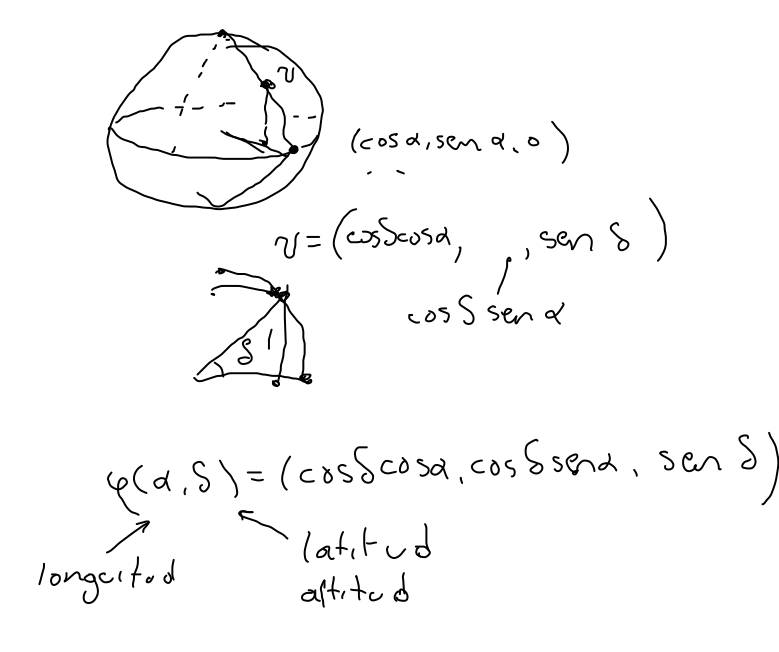 v
(cos α, sen α, 0)
v = (cosδcosα, , sen δ)
cos δ sen α
δ 1
φ(α, δ) = (cosδcosα, cosδsenα, sen δ)
longcitud
latitud
altitud